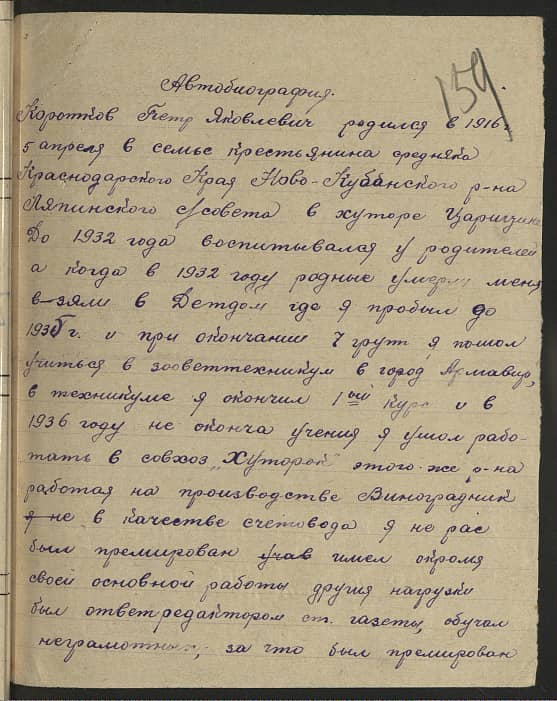 159.
Автобиография.
Коротков Петр Яковлевич родился в 1916 г
5 апреля в семье крестьянина средняка
Краснодарского Края Ново-Кубанского р-на
Ляпинского с/совета в хуторе Царицине
До 1932 года воспитывался у родителей
а когда в 1932 году родные умерли меня
взяли в Детдом где я пробыл до
1935 г. и при окончании 7 групп я пошол
учиться в зооветтехникум в город Армавир,
в техникуме я окончил 1ый курс и в
1936 году не оконча учения я ушол рабо-
тать в совхоз „Хуторок" этого-же р-на
работая на производстве Виноградник
я не в качестве счетовода я не рас
был премирован учав имел окромя
своей основной работы другия нагрузки
был ответредактором ст. газеты, обучал
неграмотных, за что был премирован